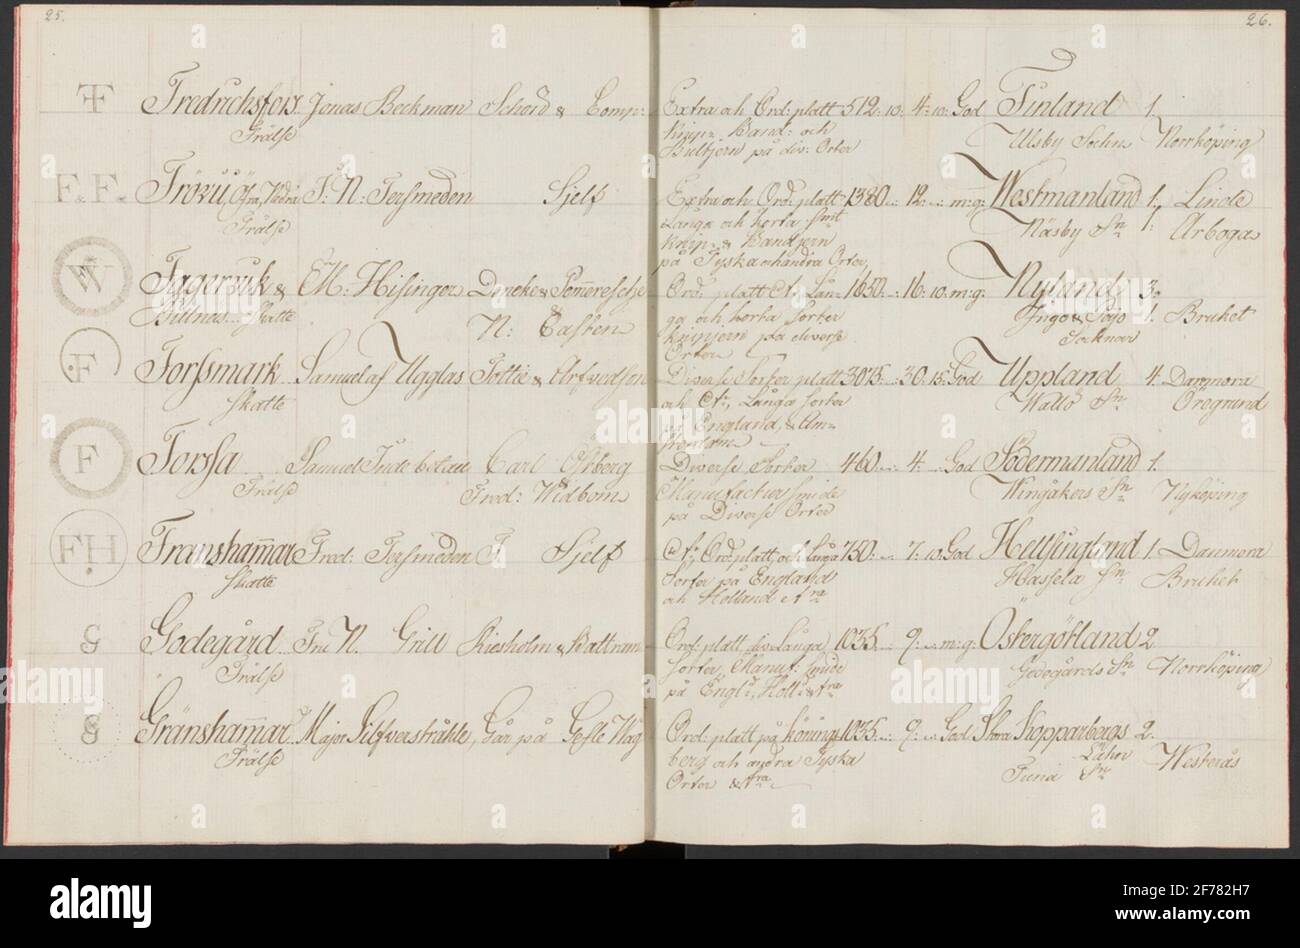 25.
26.
Fredrichsfors Jonas Beckman Schörd & Comp:
Frälse
Extra och Ord: platt 512. 10. 4. 10. God Finland 1.
Knip- Band: och Ulsby Sochn Norrköping
Bultjern på div: Orter
F. F. Frövii, Öfra, Nedra F: N: Tersmeden Sjelf
Frälse
Extra och Ord: platt 1380 12. m:g: Westmanland 1. Linde
Långa och korta smt Näsby Sn 1: Arboga
Knip- & Bandjern
på Tyska och andra Orter,
W Fagervik & M: Hisinger Deneke & Pommeresche
Billnäs Skatte N: Casten
Ord: platt Långa 1650 16. 10. m:g: Nyland 3.
ga och korta Sorter Ingo & Pojo 1. Bruket
knipjern på diverse Socknar
Orter
F Forssmark Samuel af Ugglas Tottie & Arfvedson
Skatte
Diverse Sorter platt 3075 30. 15. God Uppland 4. Dannmora
och Långa Sorter Wallö Sn Öregrund
på England, & Am-
sterdam
F Forssa Samuel Carl Östberg
Frälse Fred: Widbom
Diverse Sorter 460 4. God Södermanland 1.
Manufactur smide Wingåkers Sn Nyköping
på Diverse Orter
FH Franshammar Fred: Tersmeden F. Sjelf
Skatte
Ord: platt, och Långa 750: 7. 10. God Hellsingland 1. Danmora
Sorter på England Hassela Sn Bruket
och Holland &tra
G Godegård N. Grill Kiesholm & Battram
Frälse
Ord: platt div. Långa 1035 9: m:g: Östergötland 2.
Sorter, Manuf: smide Godegårds Sn Norrköping
på Engl:d, Holl: &tra
G Gränshammar Major Silfverstråhle, Går på Gefle Wåg
Frälse
Ord: platt på Könings 1035 9: God Stora Kopparbergs 2.
berg och andra Tyska Lähn Westerås
Orter &tra Tuna Sn
alamy
Image ID: 2F782H7
www.alamy.com